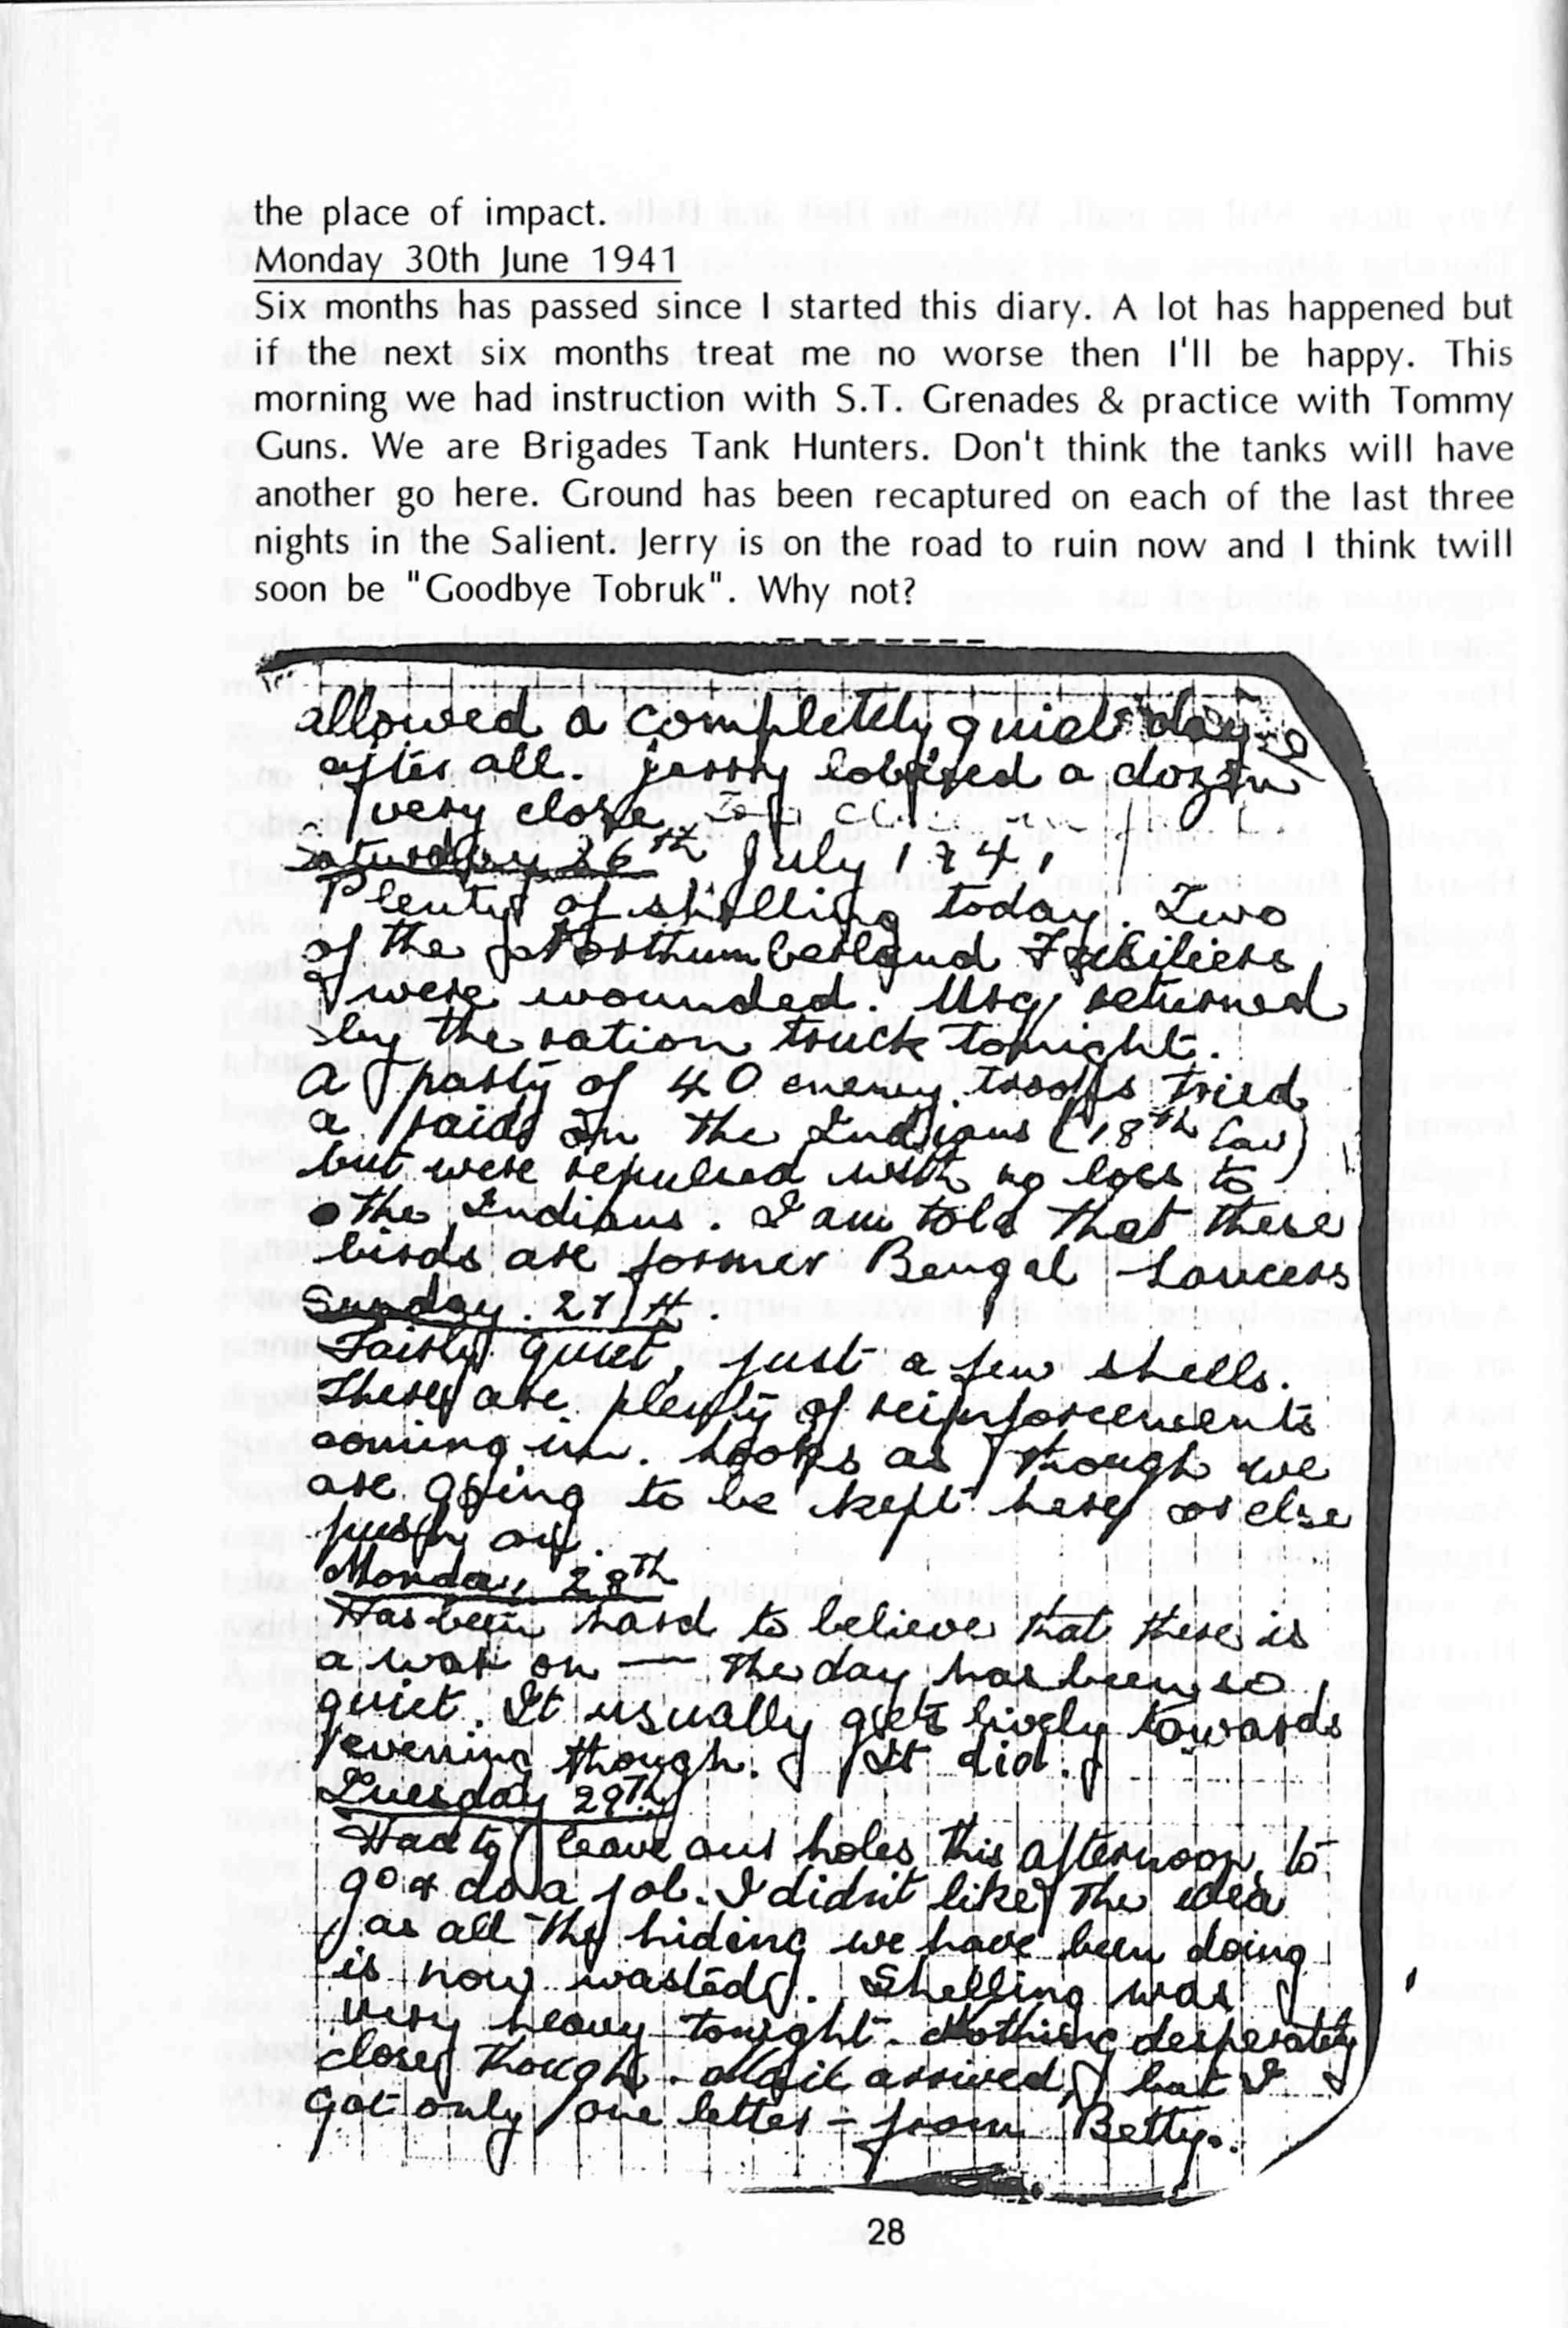 the place of impact.
Monday 30th June 1941
Six months has passed since I started this diary. A lot has happened but
if the next six months treat me no worse then I'll be happy. This
morning we had instruction with S.T. Grenades & practice with Tommy
Guns. We are Brigades Tank Hunters. Don't think the tanks will have
another go here. Ground has been recaptured on each of the last three
nights in the Salient. Jerry is on the road to ruin now and I think twill
soon be "Goodbye Tobruk". Why not?
allowed a completely quiet day
after all. Jerry lobbed a dozen
very close
Saturday 26th July 1941
Plenty of shelling today. Two
of the Northumberland Fusiliers
were wounded. returned
by the ration truck tonight.
A party of 40 enemy troops tried
a raid on the Indians (18th Cav)
but were repulsed with no loss to
the Indians. I am told that these
birds are former Bengal Lancers
Sunday. 27th.
Fairly quiet, just a few shells.
There are plenty of reinforcements
coming in. Looks as though we
are going to be kept here or else
push on.
Monday 28th
Has been hard to believe that there is
a war on — the day has been so
quiet. It usually gets lively towards
evening though. It did.
Tuesday 29th
Had to leave our holes this afternoon to
go & do a job. I didn't like the idea
as all the hiding we have been doing
is now wasted. Shelling was
very heavy tonight. Nothing desperately
close though. Mail arrived, but I
got only one letter - from Betty.
28